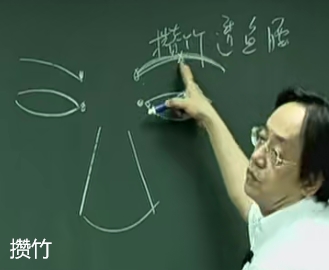 攒竹透鱼腰
攒竹